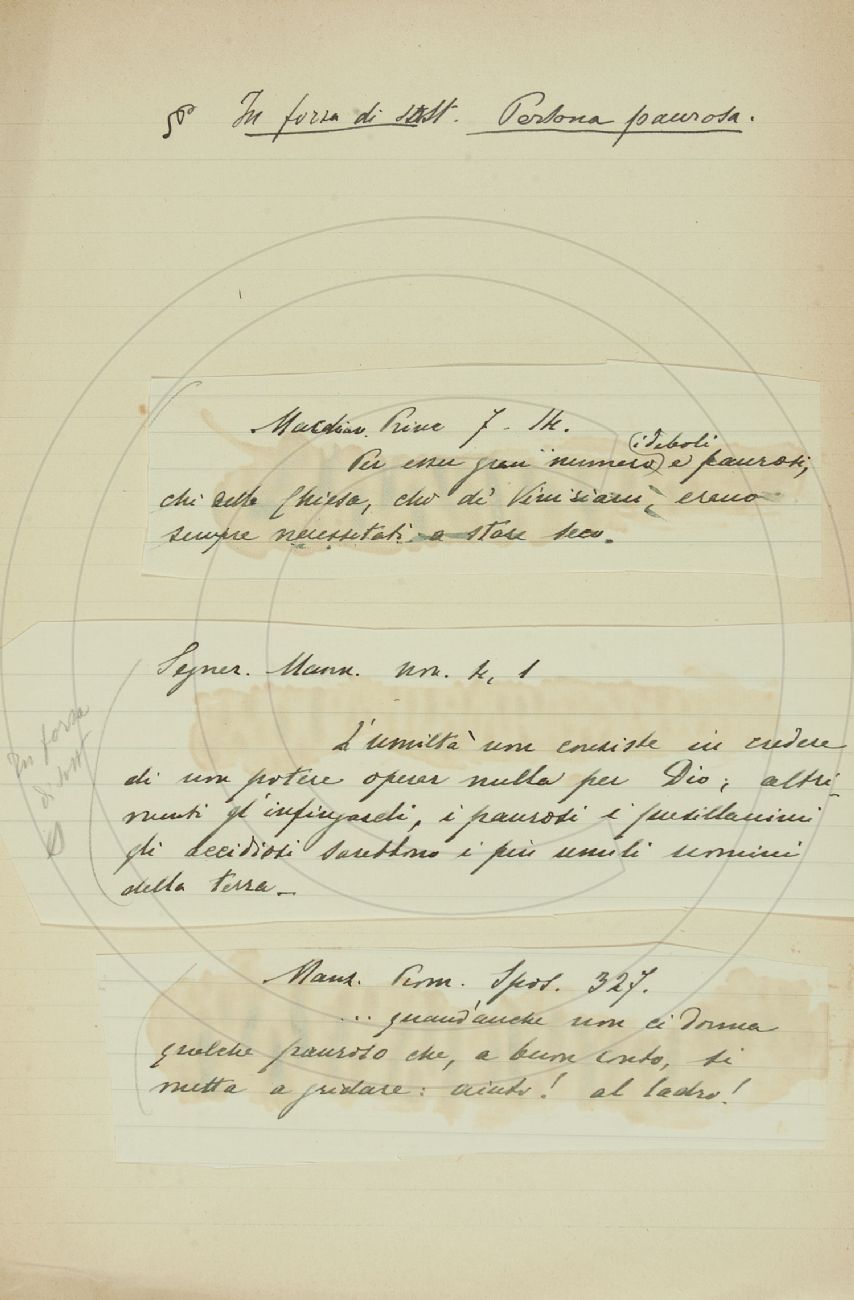 § In forza di sost. Persona paurosa.
Machiav. Princ 7 - 14.
Per esser gran numero (i deboli) e paurosi,
chi della Chiesa, chi de' Viniziani, erano
sempre necessitati a stare seco.
Segner. Mann. nov. 4, 1
L'umiltà non consiste in credere
di non potere operar nulla per Dio; altri-
menti gl'infingardi, i paurosi i pusillanimi
gli accidiosi sarebbono i più umili uomini
della terra.
In forza
di sost
Manz. Prom. Spos. 327.
... quand'anche non ci dorma
qualche pauroso che, a buon conto, si
metta a gridare: aiuto! al ladro!